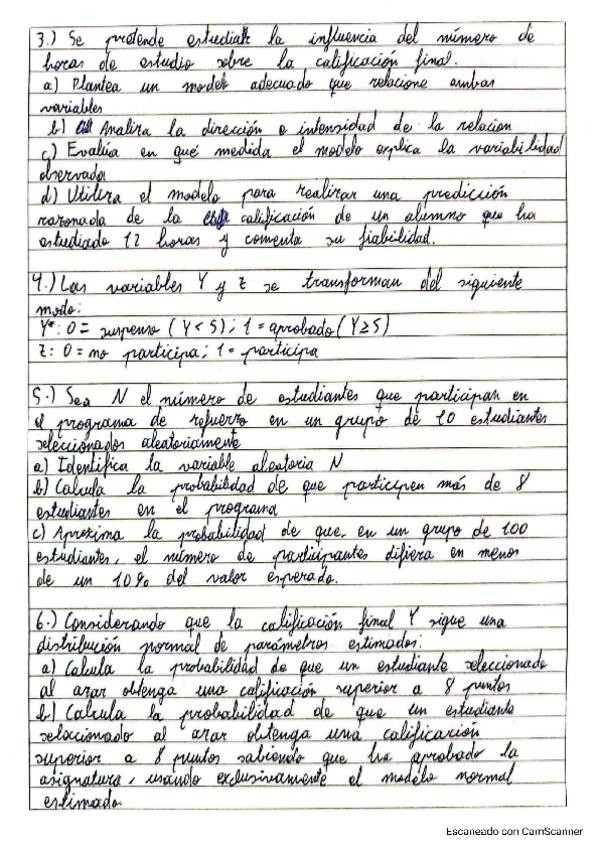 3.) Se pretende estudiar la influencia del número de
horas de estudio sobre la calificación final.
a) Plantea un modelo adecuado que relacione ambas
variables
b) Analiza la dirección e intensidad de la relacion
c) Evalúa en qué medida el modelo explica la variabilidad
observada
d) Utiliza el modelo para realizar una predicción
razonada de la calificación de un alumno que ha
estudiado 12 horas y comenta su fiabilidad.
4.) Las variables Y y Z se transforman del siguiente
modo:
Y*: 0 = suspenso (Y < 5); 1 = aprobado (Y ≥ 5)
Z: 0 = no participa; 1 = participa
5.) Sea N el número de estudiantes que participan en
el programa de refuerzo en un grupo de 10 estudiantes
seleccionados aleatoriamente
a) Identifica la variable aleatoria N
b) Calcula la probabilidad de que participen más de 8
estudiantes en el programa
c) Aproxima la probabilidad de que, en un grupo de 100
estudiantes, el número de participantes difiera en menos
de un 10% del valor esperado.
6.) Considerando que la calificación final Y sigue una
distribución normal de parámetros estimados:
a) Calcula la probabilidad de que un estudiante seleccionado
al azar obtenga una calificación superior a 8 puntos
b) Calcula la probabilidad de que un estudiante
seleccionado al azar obtenga una calificación
superior a 8 puntos sabiendo que ha aprobado la
asignatura, usando exclusivamente el modelo normal
estimado.
Escaneado con CamScanner